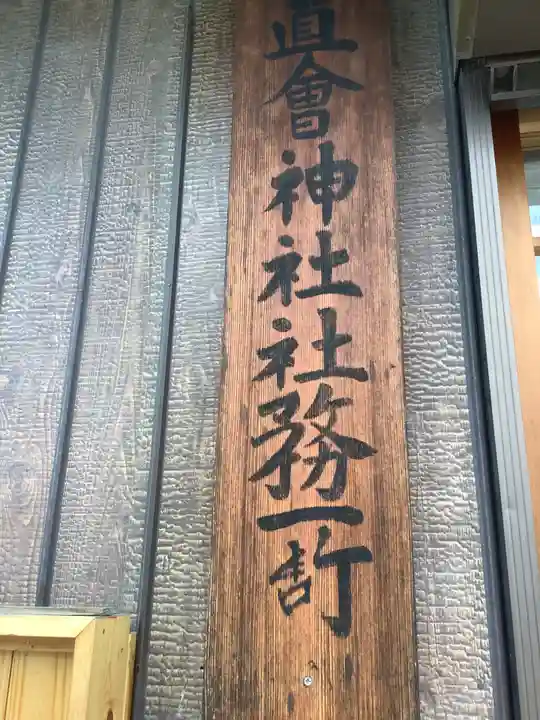 直會神社社務所